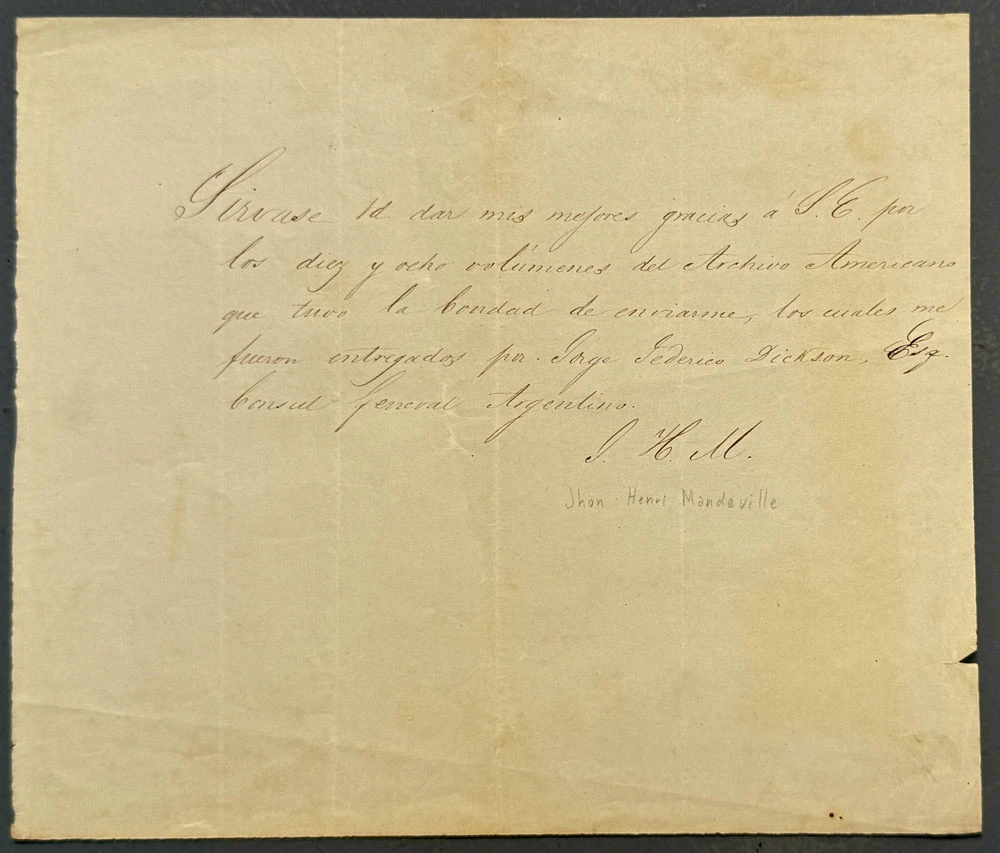 Sírvase Vd. dar mis mejores gracias á S. E. por
los diez y ocho volúmenes del Archivo Americano
que tuvo la bondad de enviarme, los cuales me
fueron entregados por Jorge Federico Dickson, Esq.
Consul General Argentino.
J. H. M.
Jhon Henri Mandeville